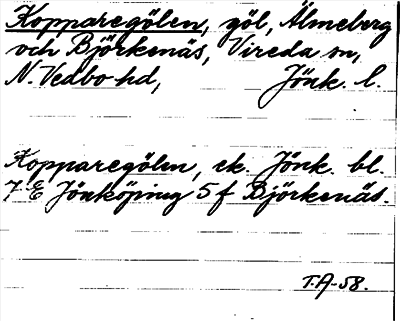 Kopparegölen, göl, Älmeberg
och Björkenäs, Vireda sn,
N. Vedbo hd, Jönk. l.
Kopparegölen, ek. Jönk. bl.
7 E Jönköping 5 f Björkenäs.
T.A-58.